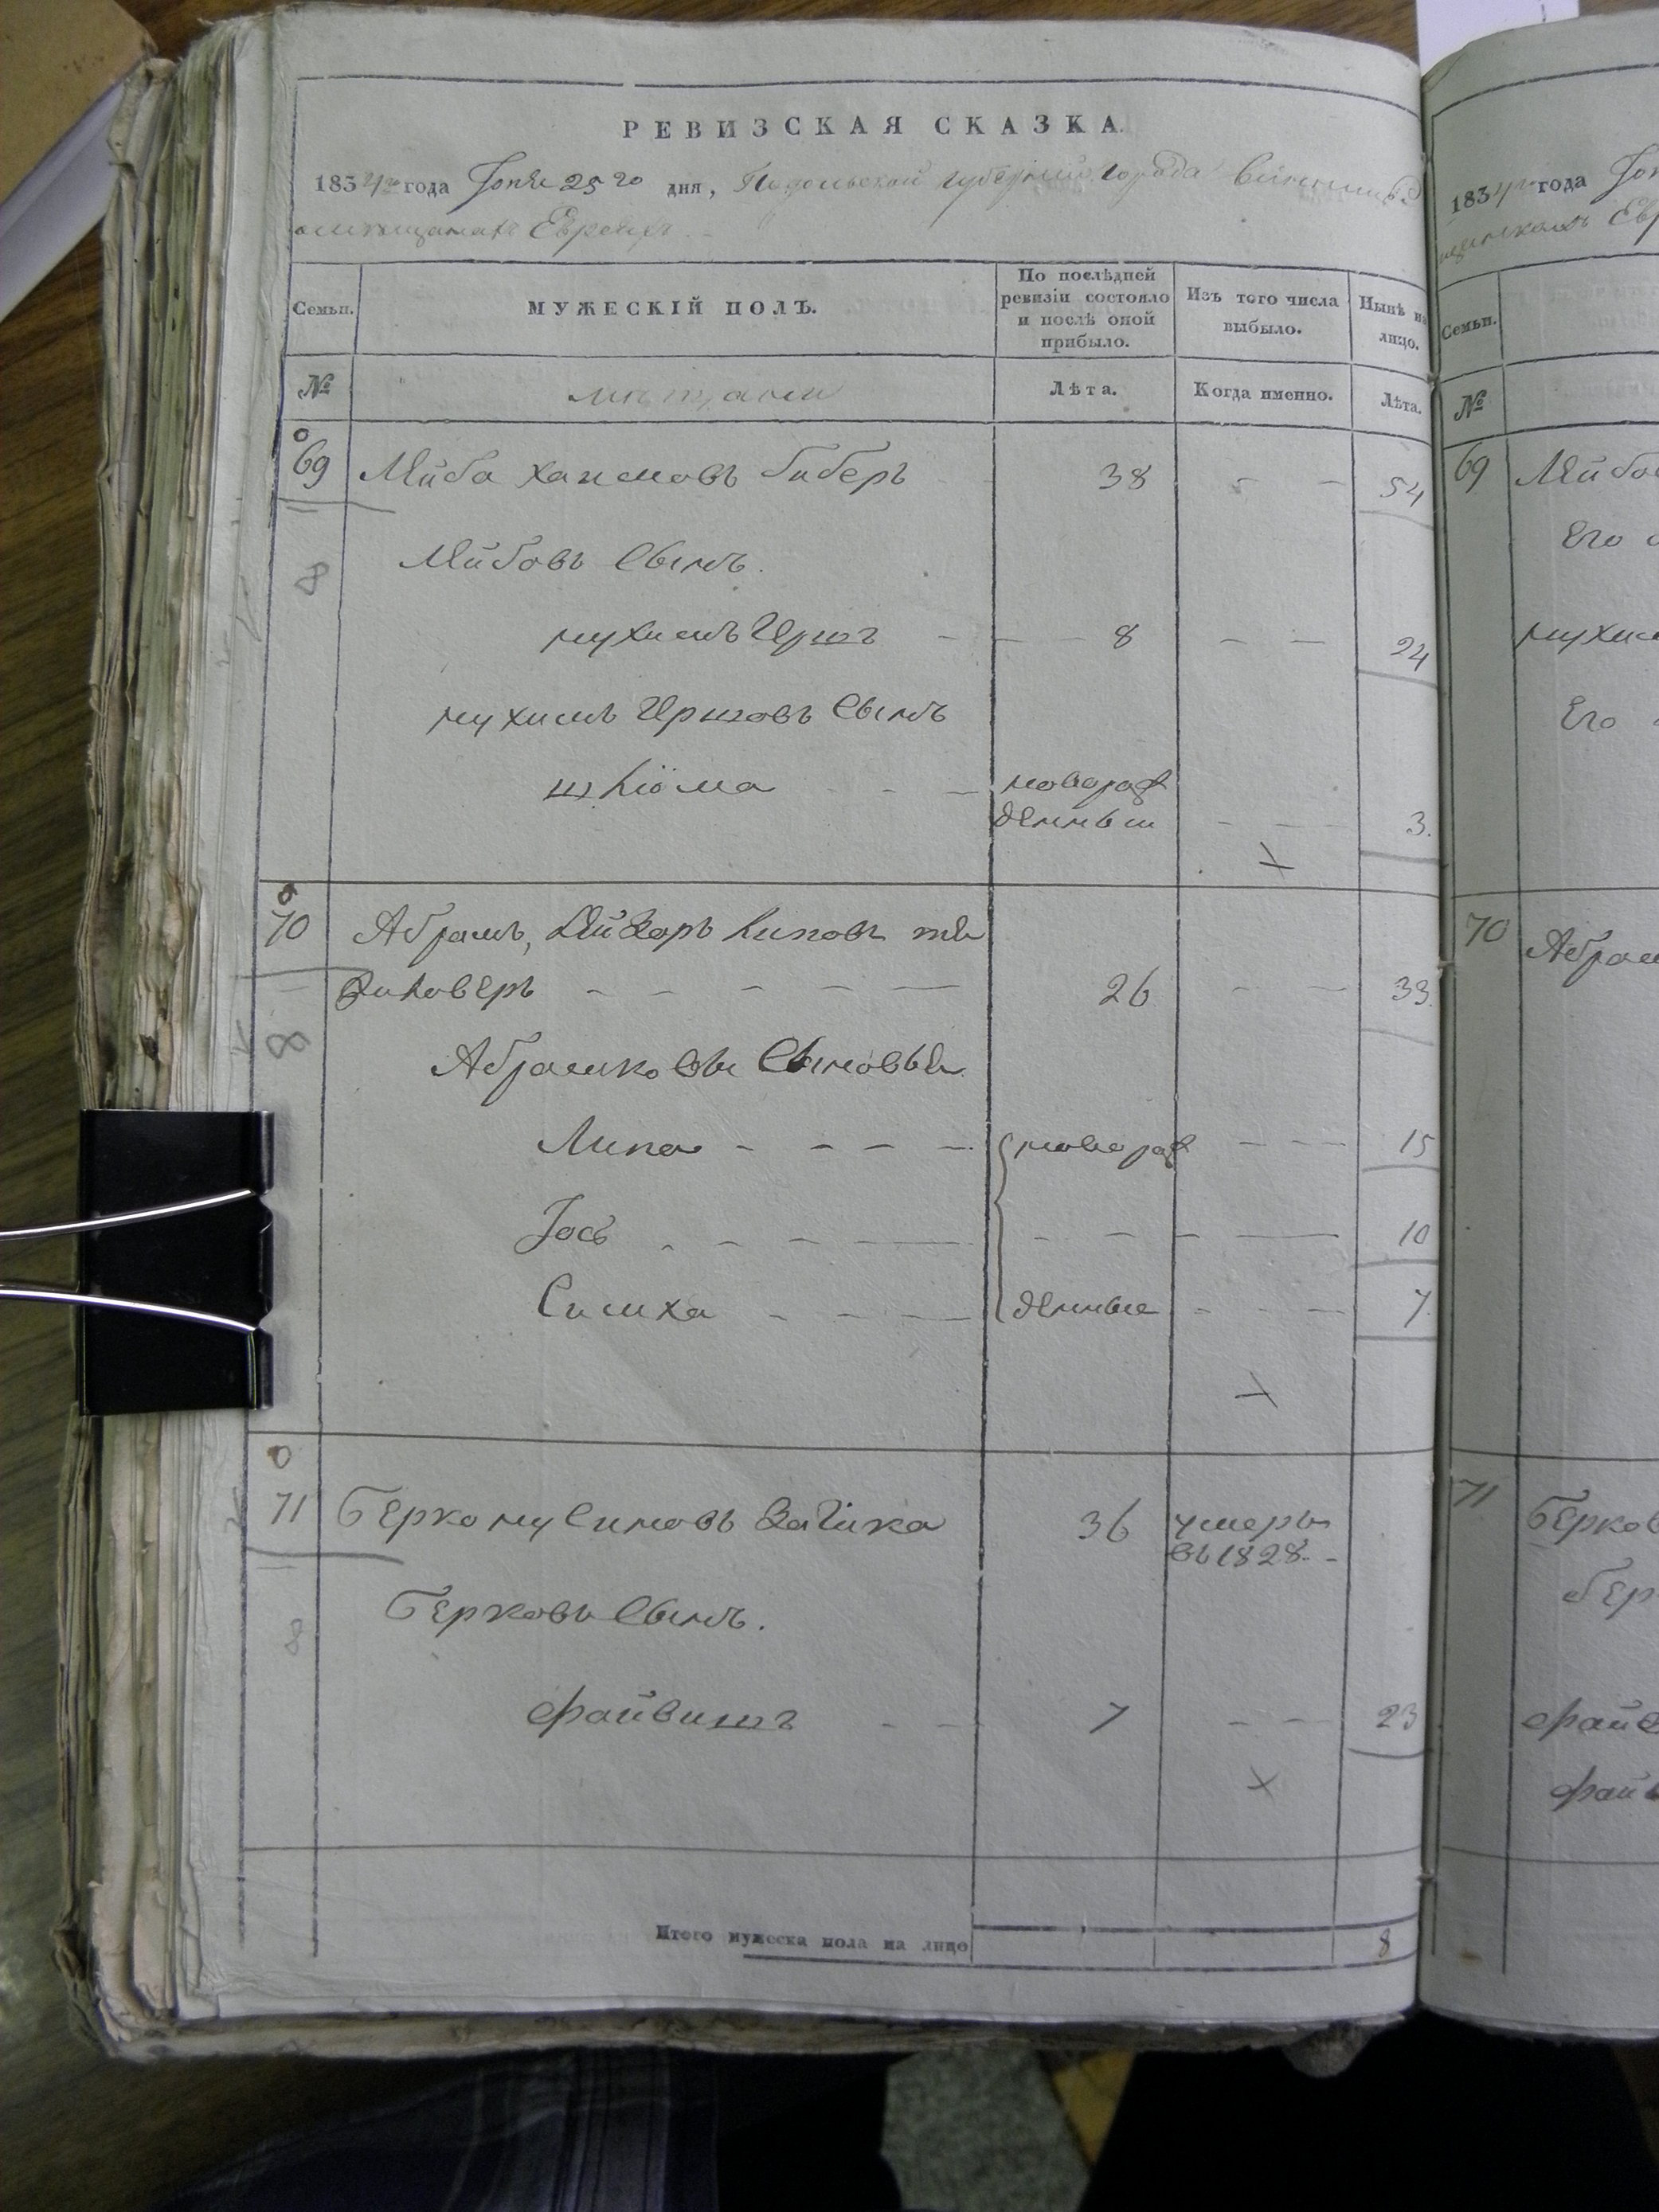 РЕВИЗСКАЯ СКАЗКА.
1834го года Іюня 25го дня, Подольской губерніи города Винницы о
мѣщанахъ Евреяхъ.
Семьи.
МУЖЕСКІЙ ПОЛЪ.
По послѣдней ревизіи состояло и послѣ оной прибыло.
Изъ того числа выбыло.
Нынѣ на лицо.
№
мѣщане
Лѣта.
Когда именно.
Лѣта.
69 Лейба Хаимовъ 38 - - 54
8
Лейбовъ сынъ.
нухимъ Иршъ - - 8 - - 24
нухимъ Иршовъ сынъ
шліома - - - новорож
денный - - - 3.
70 Абрамъ, Лейзоръ Липовъ
26 - - 33.
8
Абрамковы сыновья
Липа - - - - новорож - - - 15
Іось - - - - - - - - - 10
Симха - - - - денные - - - 7.
71 Берко нусимовъ Заика 36 умеръ
въ 1828. -
8
Берковъ сынъ.
файвишъ - - 7 - - 23
Итого мужеска пола на лицо 8
1834го года
Семьи.
№
69
Его
нухим
Его
70 Абрам
71 Берков
Бер
файв
файв